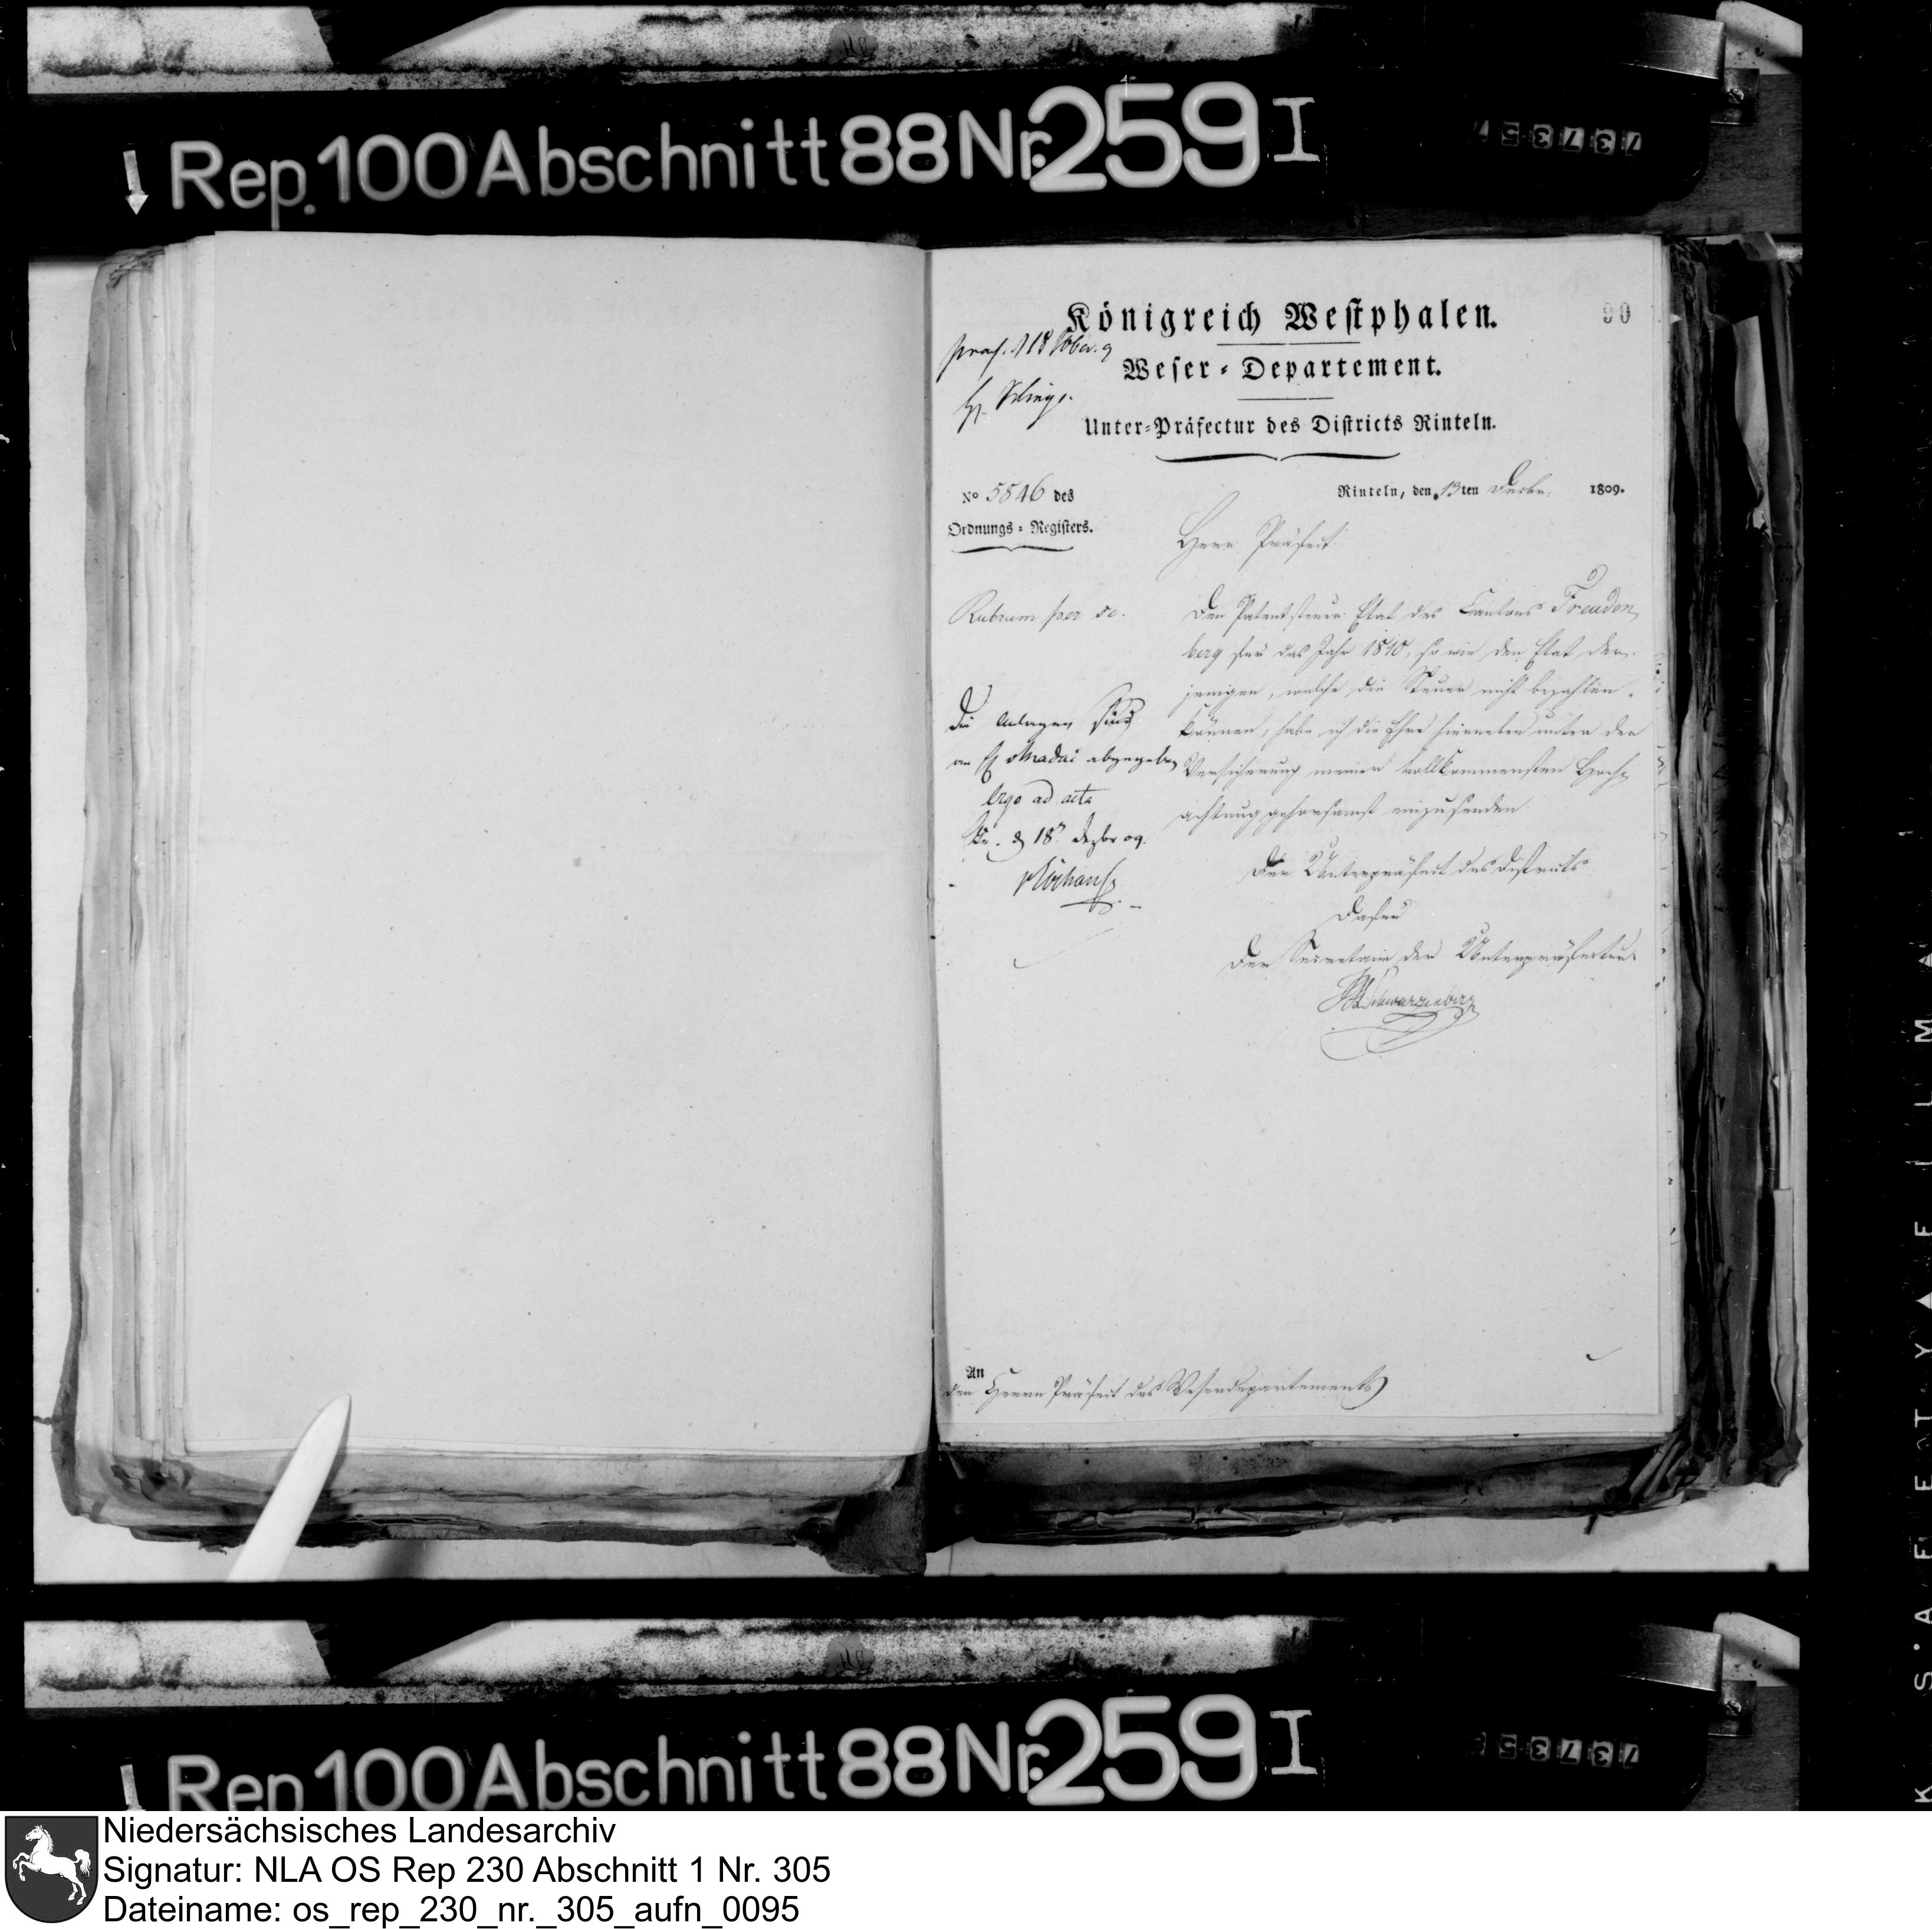 Rep. 100 Abschnitt 88 Nr. 259 I
90
Königreich Westphalen.
Weser-Departement.
Unter-Präfectur des Districts Rinteln.
No 5846 des
Ordnungs-Registers.
Rinteln, den 13ten Decbr. 1809.
Herr Präfect!
Rubrum per se.
Den Patentsteuer Etat des Cantons Freuden,
berg für das Jahr 1810, so wie den Etat der,
jenigen, welche die Steuer nicht bezahlen
können, habe ich die Ehre hierneben unter der
Versicherung meiner vollkommensten Hoch,
achtung gehorsamst einzusenden.
Der Unterpräfect des Districts
Dafür
Der Secretair der Unterpräfectur
Schwarzenberg
Die Anlagen sind
an H Madai abgegeben
ergo ad acta
18 Dezbr 09.
An
den Herrn Präfect des Weserdepartements
Rep. 100 Abschnitt 88 Nr. 259 I
Niedersächsisches Landesarchiv
Signatur: NLA OS Rep 230 Abschnitt 1 Nr. 305
Dateiname: os_rep_230_nr._305_aufn_0095